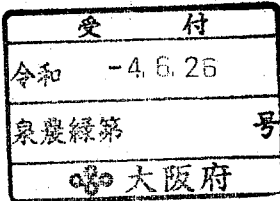 受付
令和 -4.6.26
泉農緑第 号
大阪府